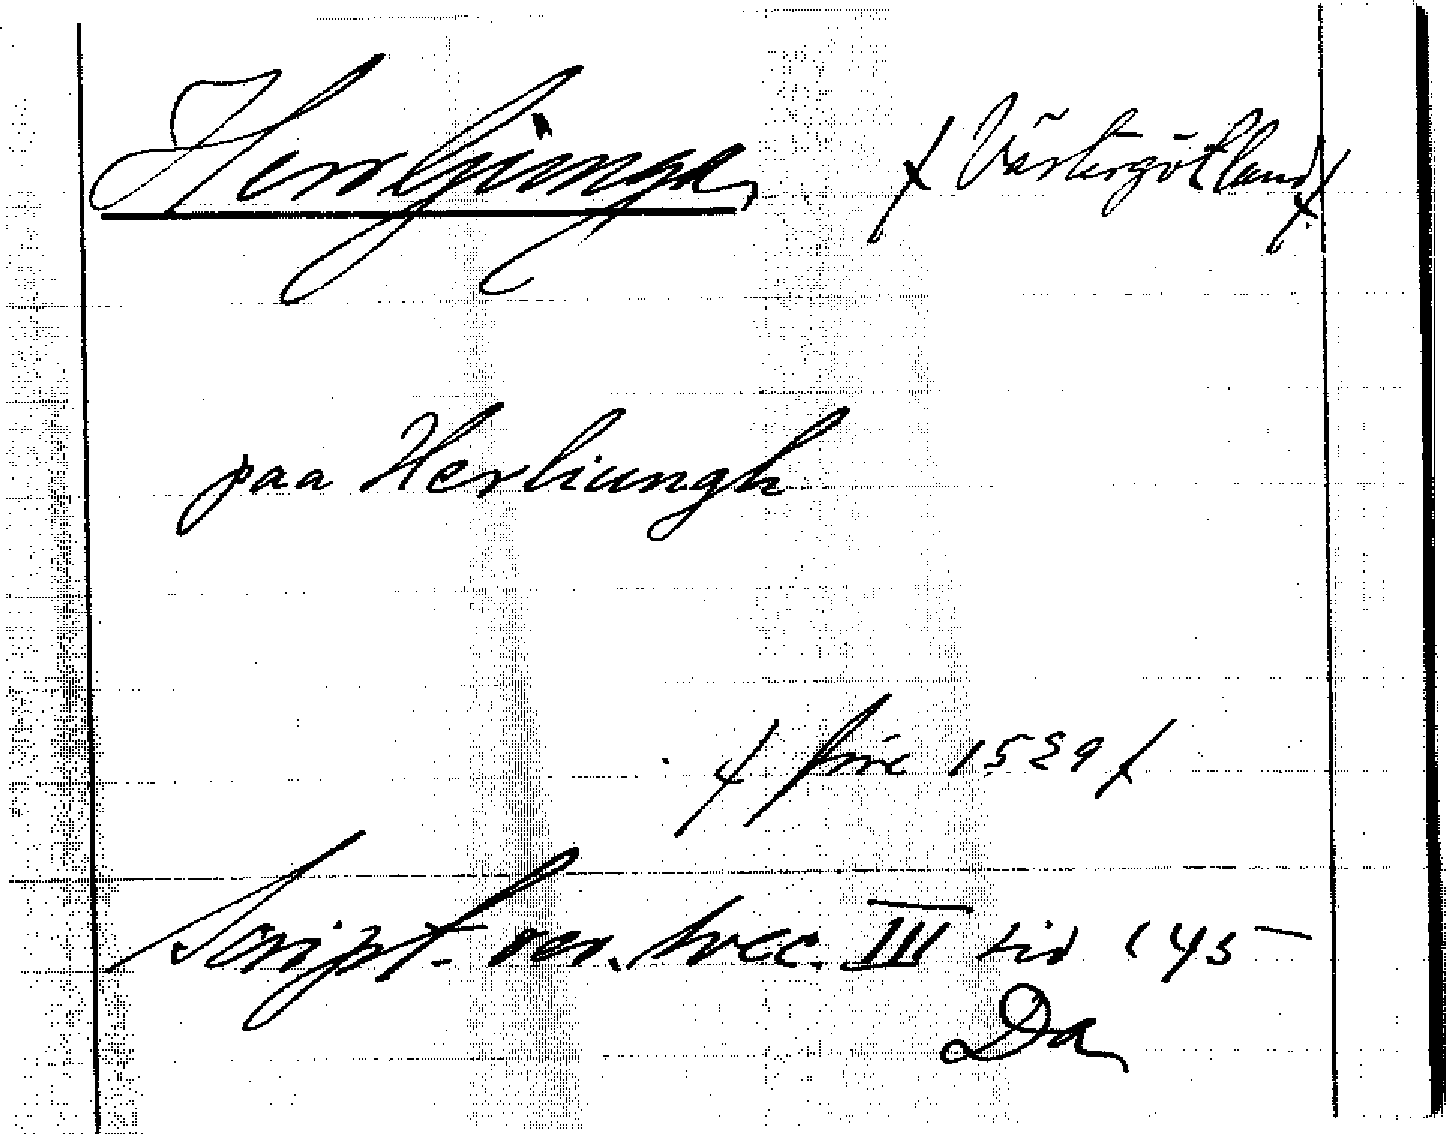 Herrljunga (Västergötland)
paa Herliungh
(före 1529)
Script. rer. svec. III sid 145
Da